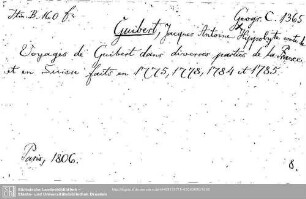 Itin. B. 160 f
Geogr. C. 1365
Guibert, Jacques Antoine Hippolyte
Voyages de Guibert dans diverses parties de la France
et en Suisse faits en 1775, 1778, 1784 et 1785.
Paris, 1806.
8.